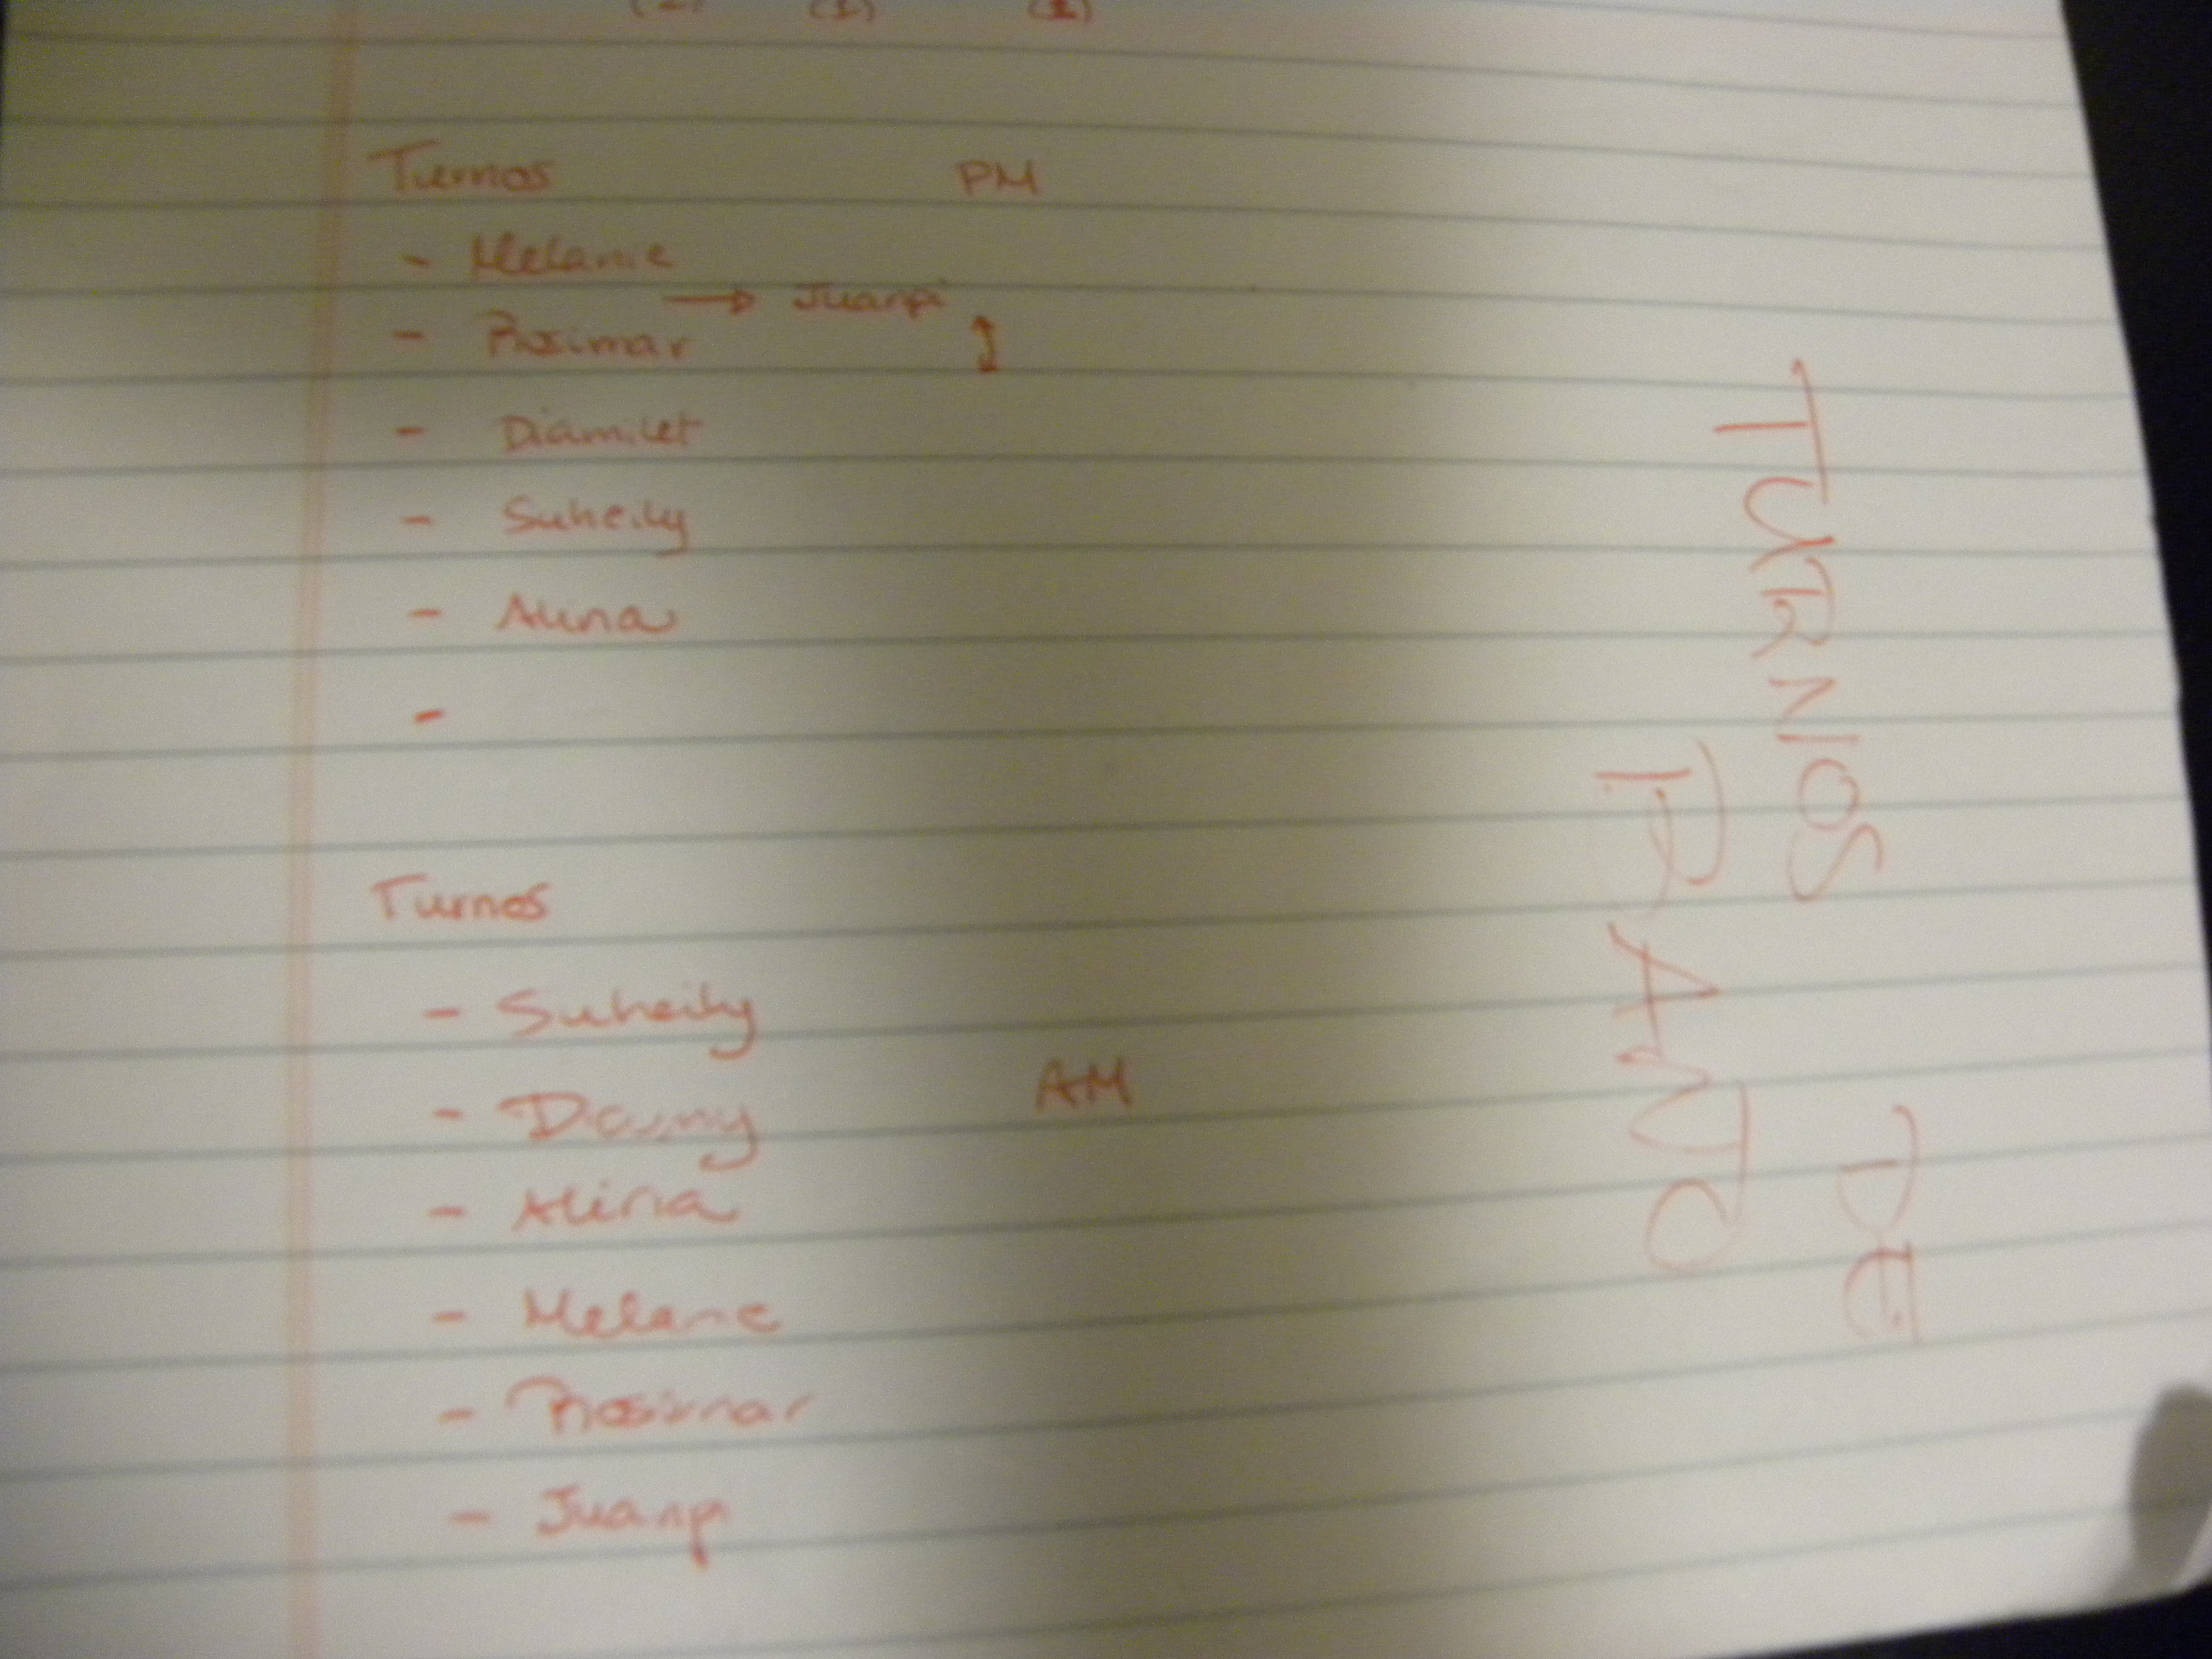 (2) (1) (1)
Turnos PM
- Melanie
→ Juanpi
- Rosimar
- Diamilet
- Suheily
- Alina
-
Turnos
- Suheily
AM
- Alina
- Melanie
- Rosimar
- Juanpi
TURNOS DE